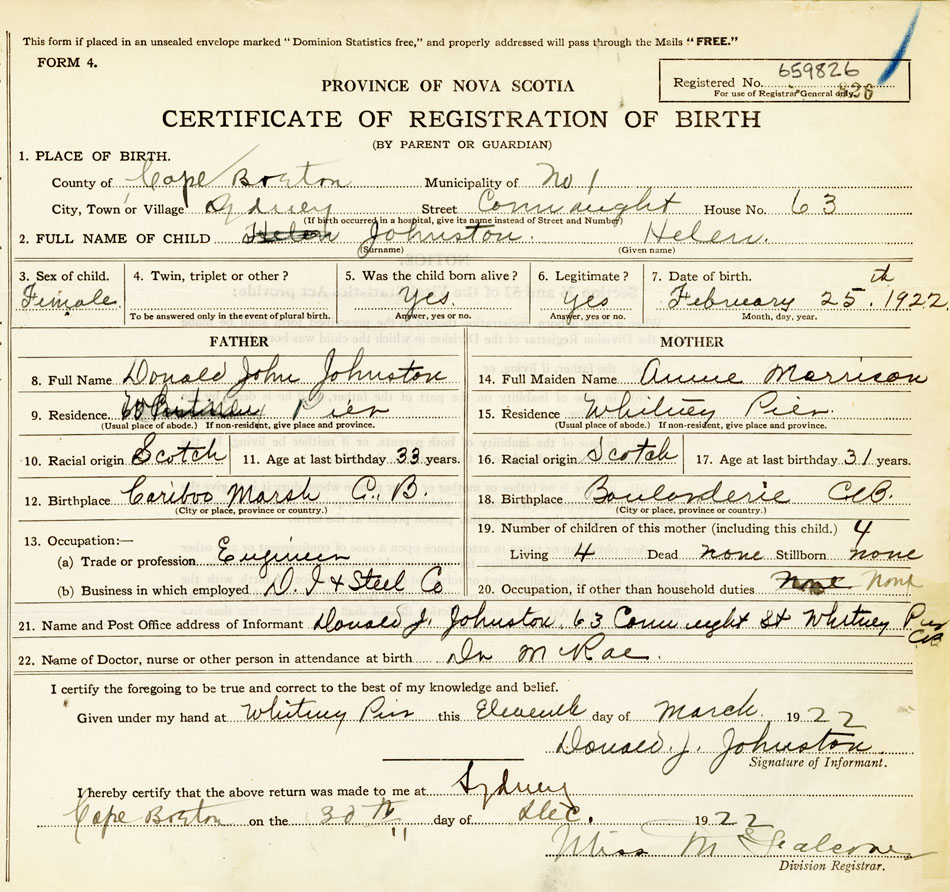 This form if placed in an unsealed envelope marked "Dominion Statistics free," and properly addressed will pass through the Mails "FREE."
FORM 4.
PROVINCE OF NOVA SCOTIA
Registered No. 659826
For use of Registrar General only.
CERTIFICATE OF REGISTRATION OF BIRTH
(BY PARENT OR GUARDIAN)
1. PLACE OF BIRTH.
County of Cape Breton Municipality of No 1
City, Town or Village Sydney Street Connaught House No. 63
(If birth occurred in a hospital, give its name instead of Street and Number)
2. FULL NAME OF CHILD Helen Johnston. Helen.
(Surname) (Given name)
3. Sex of child. 4. Twin, triplet or other? 5. Was the child born alive? 6. Legitimate? 7. Date of birth.
Female. Yes Yes February 25th. 1922
To be answered only in the event of plural birth. Answer, yes or no. Answer, yes or no. Month, day, year.
FATHER MOTHER
8. Full Name Donald John Johnston 14. Full Maiden Name Annie Morrison
9. Residence Pier 15. Residence Whitney Pier.
(Usual place of abode.) If non-resident, give place and province. (Usual place of abode.) If non-resident, give place and province.
10. Racial origin Scotch 11. Age at last birthday 33 years. 16. Racial origin Scotch 17. Age at last birthday 31 years.
12. Birthplace Cariboo Marsh C. B. 18. Birthplace Boularderie C.B.
(City or place, province or country.) (City or place, province or country.)
13. Occupation:— 19. Number of children of this mother (including this child.) 4
(a) Trade or profession Engineer Living 4 Dead none Stillborn none
(b) Business in which employed D. I & Steel Co 20. Occupation, if other than household duties None None
21. Name and Post Office address of Informant Donald J. Johnston. 63 Connaught St Whitney Pier C.B.
22. Name of Doctor, nurse or other person in attendance at birth Dr McRae.
I certify the foregoing to be true and correct to the best of my knowledge and belief.
Given under my hand at Whitney Pier this Eleventh day of March. 1922
Donald. J. Johnston.
Signature of Informant.
I hereby certify that the above return was made to me at Sydney
Cape Breton on the 30th day of Dec. 1922
Miss M
Division Registrar.